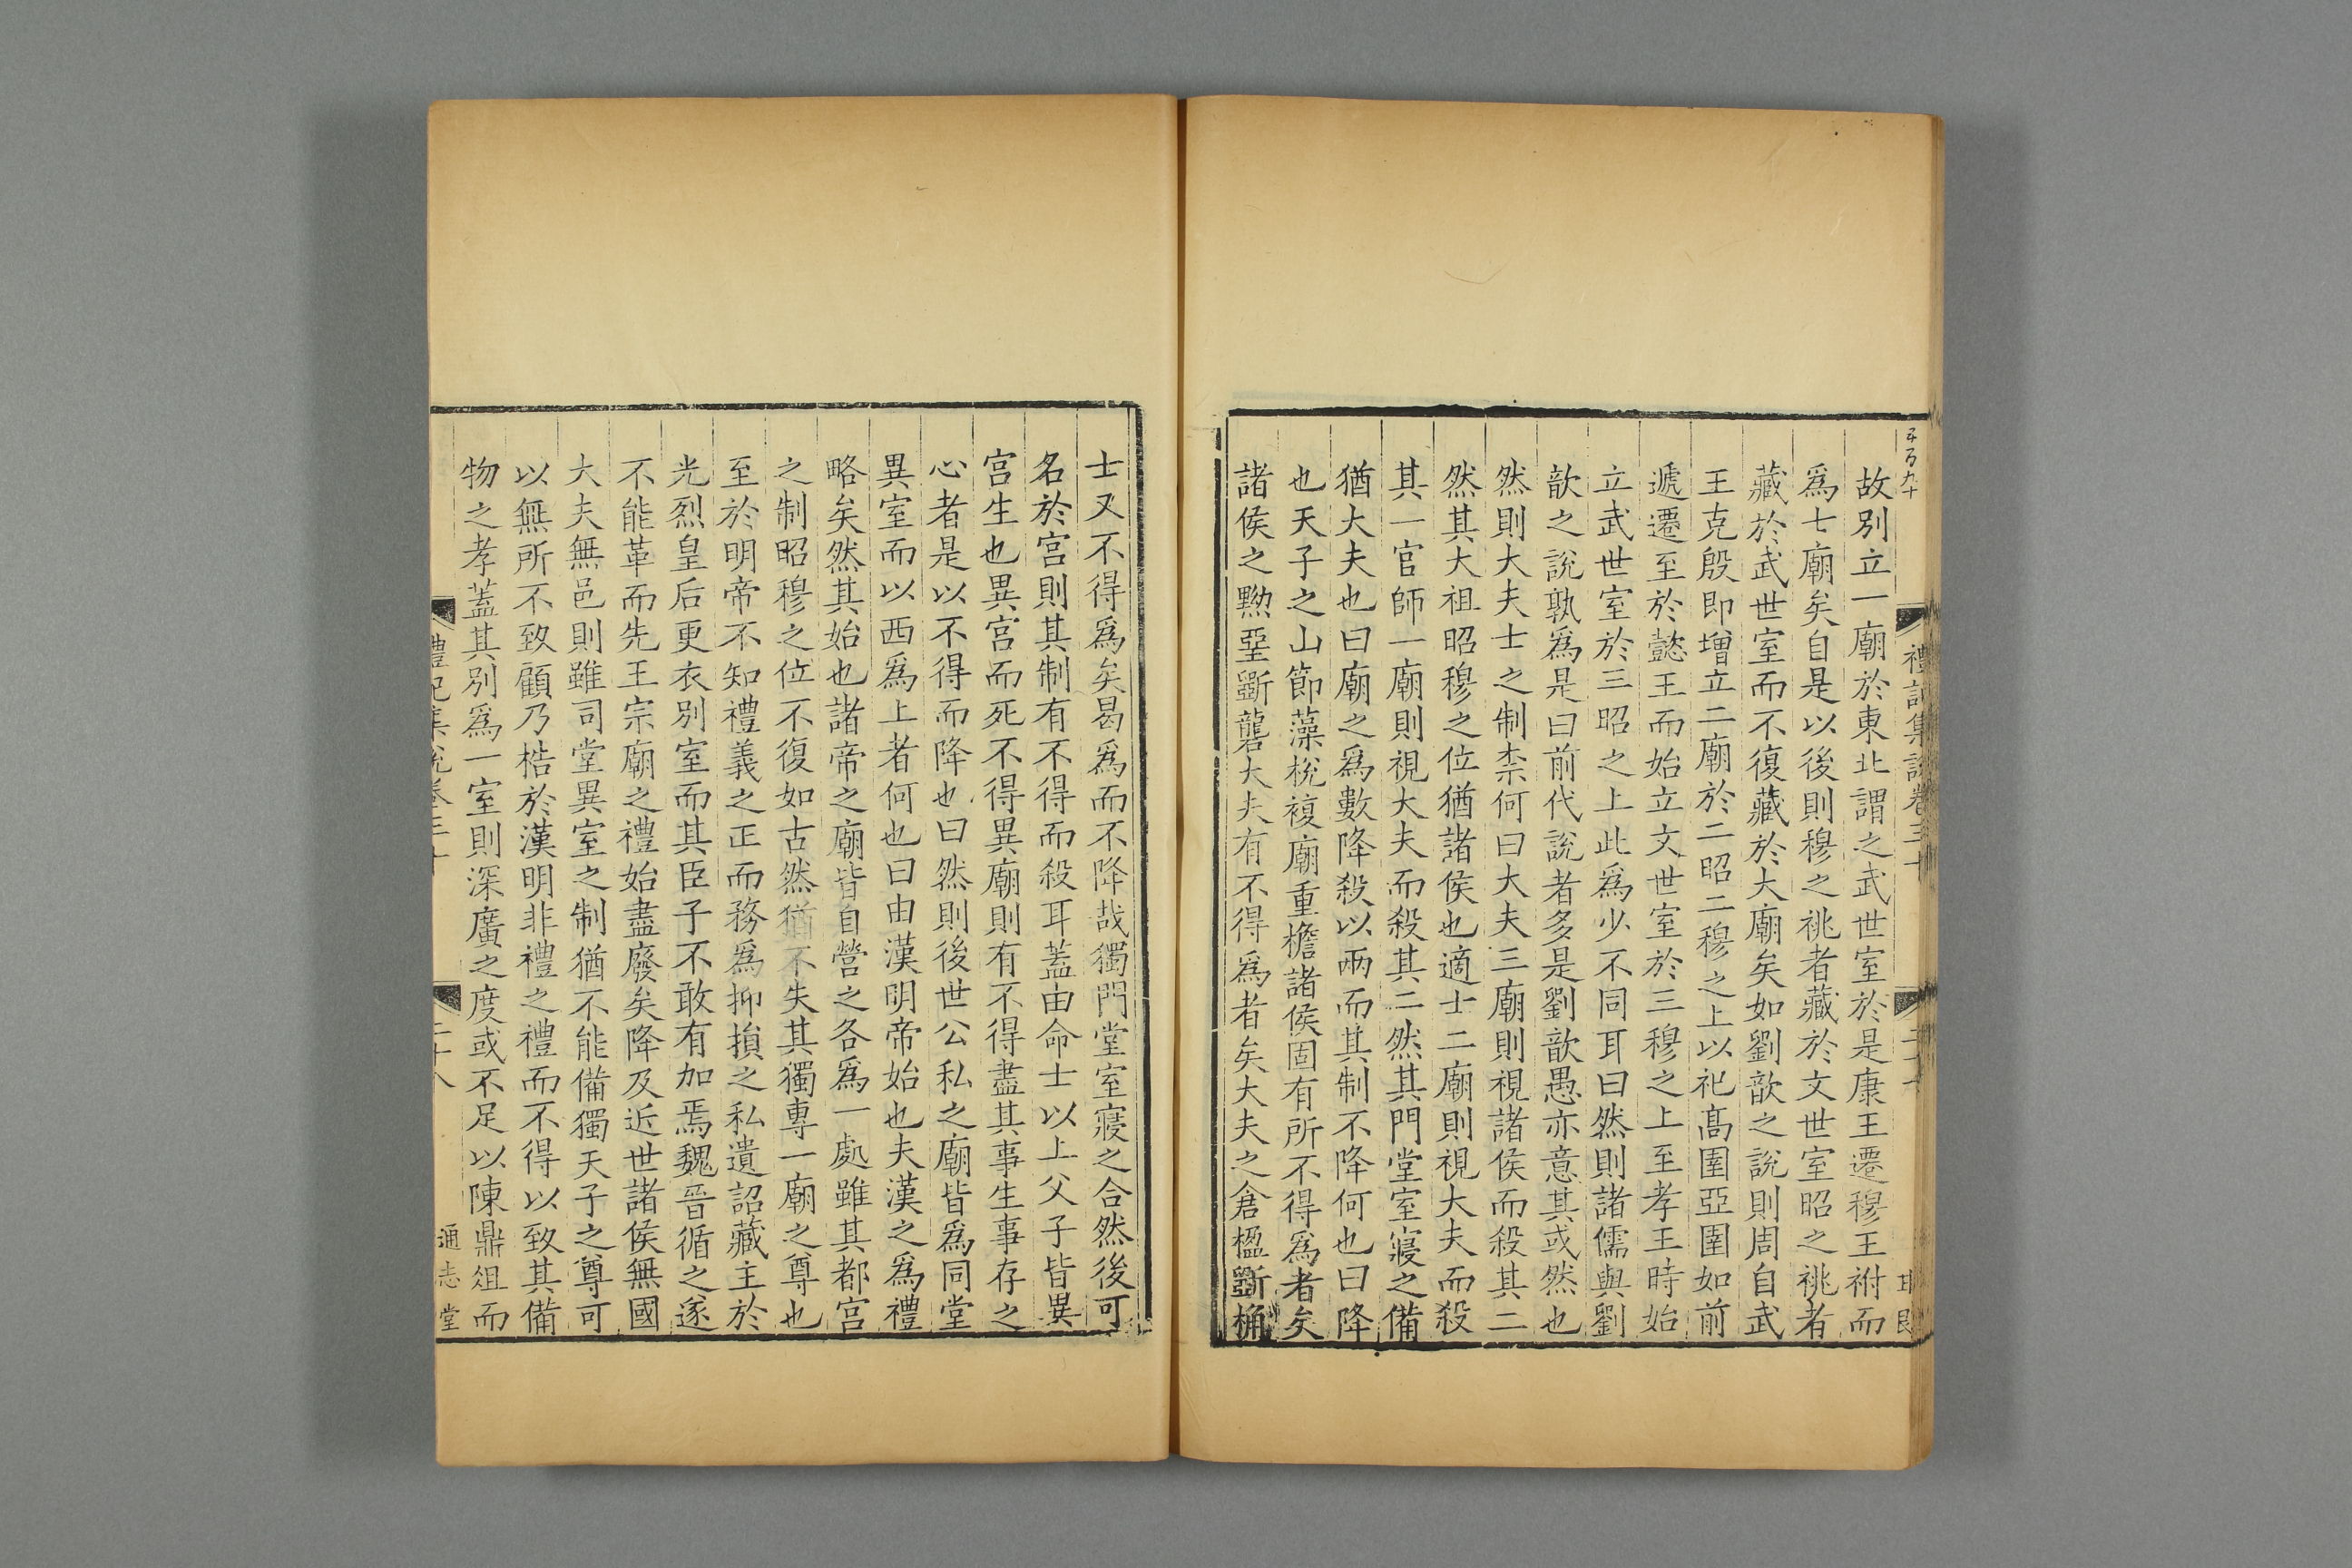 故別立一廟於東北謂之武世室於是康王遷穆王祔而
爲七廟矣自是以後則穆之祧者藏於文世室昭之祧者
藏於武世室而不復藏於大廟矣如劉歆之說則周自武
王克殷即增立二廟於二昭二穆之上以祀髙圉亞圉如前
遞遷至於懿王而始立文世室於三穆之上至孝王時始
立武世室於三昭之上此爲少不同耳曰然則諸儒與劉
歆之說孰爲是曰前代說者多是劉歆愚亦意其或然也
然則大夫士之制柰何曰大夫三廟則視諸侯而殺其二
然其大祖昭穆之位猶諸侯也適士二廟則視大夫而殺
其一官師一廟則視大夫而殺其二然其門堂室寢之備
猶大夫也曰廟之爲數降殺以兩而其制不降何也曰降
也天子之山節藻梲複廟重檐諸侯固有所不得爲者矣
諸侯之黝堊斲礱大夫有不得爲者矣大夫之倉楹斲桷
士又不得爲矣曷爲而不降哉獨門堂室寢之合然後可
名於宫則其制有不得而殺耳蓋由命士以上父子皆異
宫生也異宫而死不得異廟則有不得盡其事生事存之
心者是以不得而降也曰然則後世公私之廟皆爲同堂
異室而以西爲上者何也曰由漢明帝始也夫漢之爲禮
略矣然其始也諸帝之廟皆自營之各爲一處雖其都宫
之制昭穆之位不復如古然猶不失其獨專一廟之尊也
至於明帝不知禮義之正而務爲抑損之私遺詔藏主於
光烈皇后更衣別室而其臣子不敢有加焉魏晉循之遂
不能革而先王宗廟之禮始盡廢矣降及近世諸侯無國
大夫無邑則雖同堂異室之制猶不能備獨天子之尊可
以無所不致顧乃梏於漢明非禮之禮而不得以致其備
物之孝蓋其別爲一室則深廣之度或不足以陳鼎俎而
禮記集說卷三十
二十八
通志堂